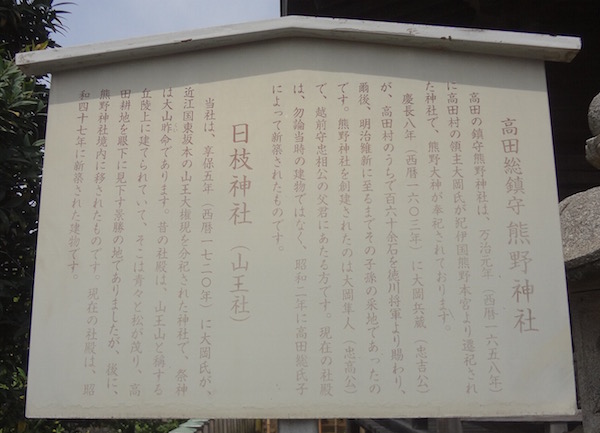 高田総鎮守 熊野神社
高田の鎮守熊野神社は、万治元年（西暦一六五八年）
に高田村の領主大岡氏が紀伊国熊野本宮より遷祀され
た神社で、熊野大神が奉祀されております。
慶長八年（西暦一六〇三年）に大岡兵蔵（忠吉公）
が、高田村のうちで百六十余石を徳川将軍より賜わり、
爾後、明治維新に至るまでその子孫の采地であったの
です。熊野神社を創建されたのは大岡隼人（忠高公）
で、越前守忠相公の父君にあたる方です。現在の社殿
は、勿論当時の建物ではなく、昭和二年に高田総氏子
によって新築されたものです。
日枝神社（山王社）
当社は、享保五年（西暦一七二〇年）に大岡氏が、
近江国東坂本の山王大権現を分祀された神社で、祭神
は大山咋命であります。昔の社殿は、山王山と称する
丘陵上に建てられていて、そこは青々と松が茂り、高
田耕地を眼下に見下す景勝の地でありましたが、後に、
熊野神社境内に移されたものです。現在の社殿は、昭
和四十七年に新築された建物です。